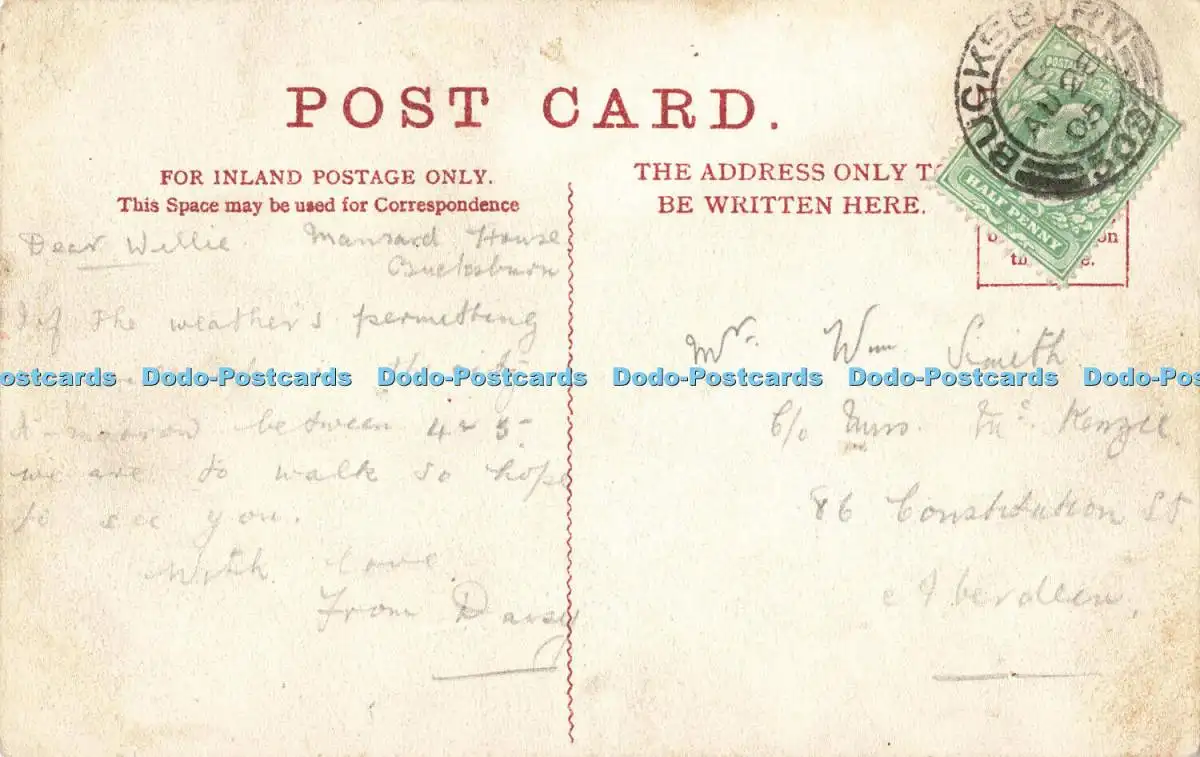 POST CARD.
FOR INLAND POSTAGE ONLY.
This Space may be used for Correspondence
Dear Willie Mansard House
Bucksburn
If the weather's permitting
to-morrow between 4 & 5
we are to walk so hope
to see you.
With love
From Daisy
THE ADDRESS ONLY TO
BE WRITTEN HERE.
Mr. Wm Smith
c/o Mrs. Mc Kenzie
86 Constitution St
Aberdeen.
BUCKSBURN
AU
05
503
POSTAGE
HALF PENNY
on
Dodo-Postcards Dodo-Postcards Dodo-Postcards Dodo-Postcards